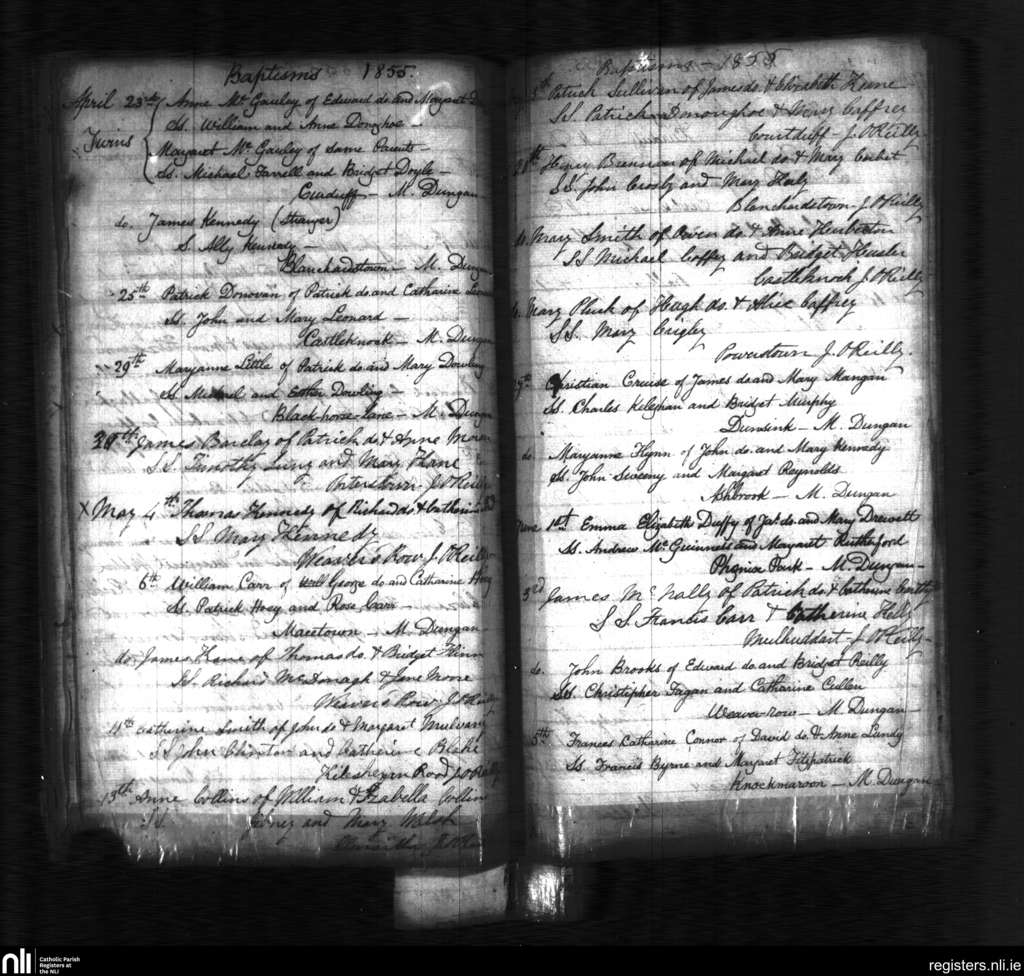 Baptisms 1855.
April 23rd Anne Mc Gauley of Edward do and Margaret
Ss. William and Anne Donghoe
Twins
Margaret Mc Gauley of same Parents
Ss. Michael Farrell and Bridget Doyle
M. Dungan
do. James Kennedy (Stranger)
S. Ally Kennedy
Blanchardstown M. Dungan
25th Patrick Donovan of Patrick do and Catharine
Ss. John and Mary Leonard
Castleknock M. Dungan
29th Maryanne Little of Patrick do and Mary Dowling
Ss. Michael and Esther Dowling
Blackhorse-lane M. Dungan
30th James Barclay of Patrick do & Anne
S.S. Timothy and Mary Kane
Porterstown J. O'Reilly
X May 4th Thomas Kennedy of Richard do & Catherine
SS Mary Kennedy
Weavers Row J. O'Reilly
6th William Carr of George do and Catharine Hoey
Ss. Patrick Hoey and Rose Carr
Macetown M. Dungan
do James Kane of Thomas do. & Bridget
SS. Richard McDonagh & Jane Moore
Weavers Row J. O'Reilly
11th Catherine Smith of John do & Margaret Mulvany
SS John Clinton and Catherine Blake
Road J. O'Reilly
13th Anne Collins of William & Isabella Collins
SS. and Mary Walsh
J. O'Reilly
Baptisms - 1855
Patrick Sullivan of James do & Elizabeth Keane
SS Patrick Donoughoe & Mary Caffrey
Courtduff J. O'Reilly
Henry Brennan of Michael do & Mary
SS. John Crosby and Mary Healy
Blanchardstown J. O'Reilly
Mary Smith of Owen do. & Anne
SS Michael Coffey and Bridget
Castleknock J. O'Reilly
Mary Pluck of Hugh do. & Alice Caffrey
SS. Mary Caigley
Powerstown J. O'Reilly.
29th Christian Cruise of James do and Mary Mangan
Ss. Charles and Bridget Murphy
Dunsink M. Dungan
do. Maryanne Flynn of John do. and Mary Kennedy
Ss. John Sweeny and Margaret Reynolds
Ashbrook M. Dungan
June 1st Emma Elizabeth Duffy of Jas. do. and Mary
Ss. Andrew McGuinness and Margaret Rutherford
Phoenix Park M. Dungan
3rd James McNally of Patrick do & Catherine
S.S. Francis Carr & Catherine Kelly
Mulhuddart J. O'Reilly
do. John Brooks of Edward do and Bridget Reilly
Ss. Christopher Fagan and Catharine Cullen
Weaver-row M. Dungan
5th Frances Catharine Connor of David do. & Anne Lundy
Ss. Francis Byrne and Margaret Fitzpatrick
Knockmaroon M. Dungan
nli
Catholic Parish
Registers at
the NLI
registers.nli.ie